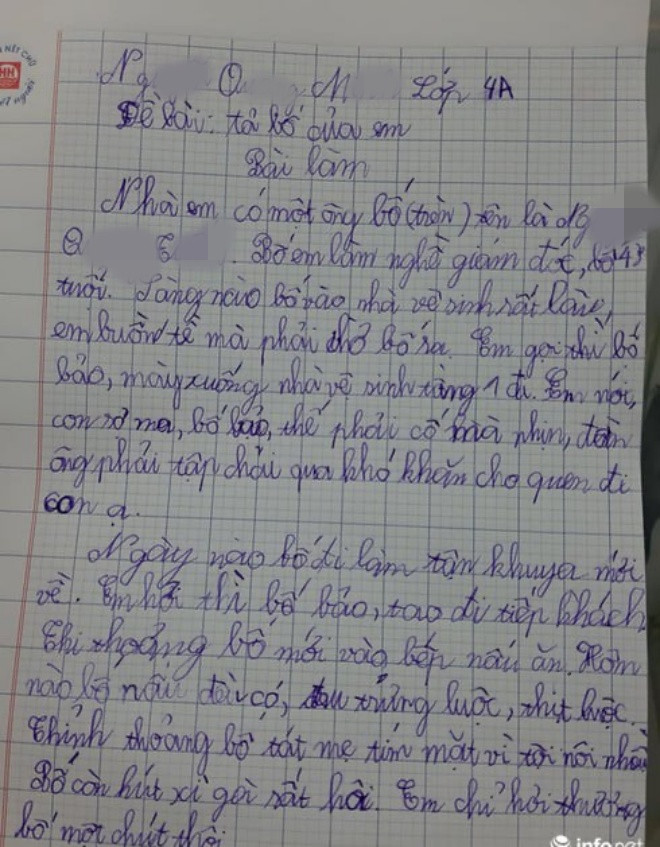 NÉT CHỮ
Ng Q M Lớp 4A
Đề bài: tả bố của em
Bài làm
Nhà em có một ông bố (trần) tên là
Q T . Bố em làm nghề giám đốc, bố 43
tuổi. Sàng nào bố vào nhà vê sinh rất lâu,
em buồn tè mà phải chờ bố ra. Em gọi thì bố
bảo, mày xuống nhà vê sinh tầng 1 đi. Em nói,
con sợ ma, bố bảo, thế phải cố mà nhịn, đàn
ông phải tập chải qua khó khăn cho quen đi
con ạ.
Ngày nào bố đi làm tận khuya mới
về. Em hỏi thì bố bảo, tao đi tiếp khách
Thi thoảng bố mới vào bếp nấu ăn. Hôm
nào bố nấu đều có, trứng luộc, thịt luộc.
Thỉnh thoảng bố tát mẹ tím mặt vì tội nói nhiều
Bố còn hút xì gà rất hôi. Em chỉ hơi thương
bố một chút thôi
infonet